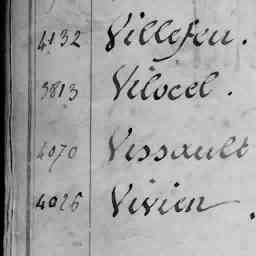 4132 Villefeu.
3813 Vilocel.
4070 Vissault
4026 Vivien.